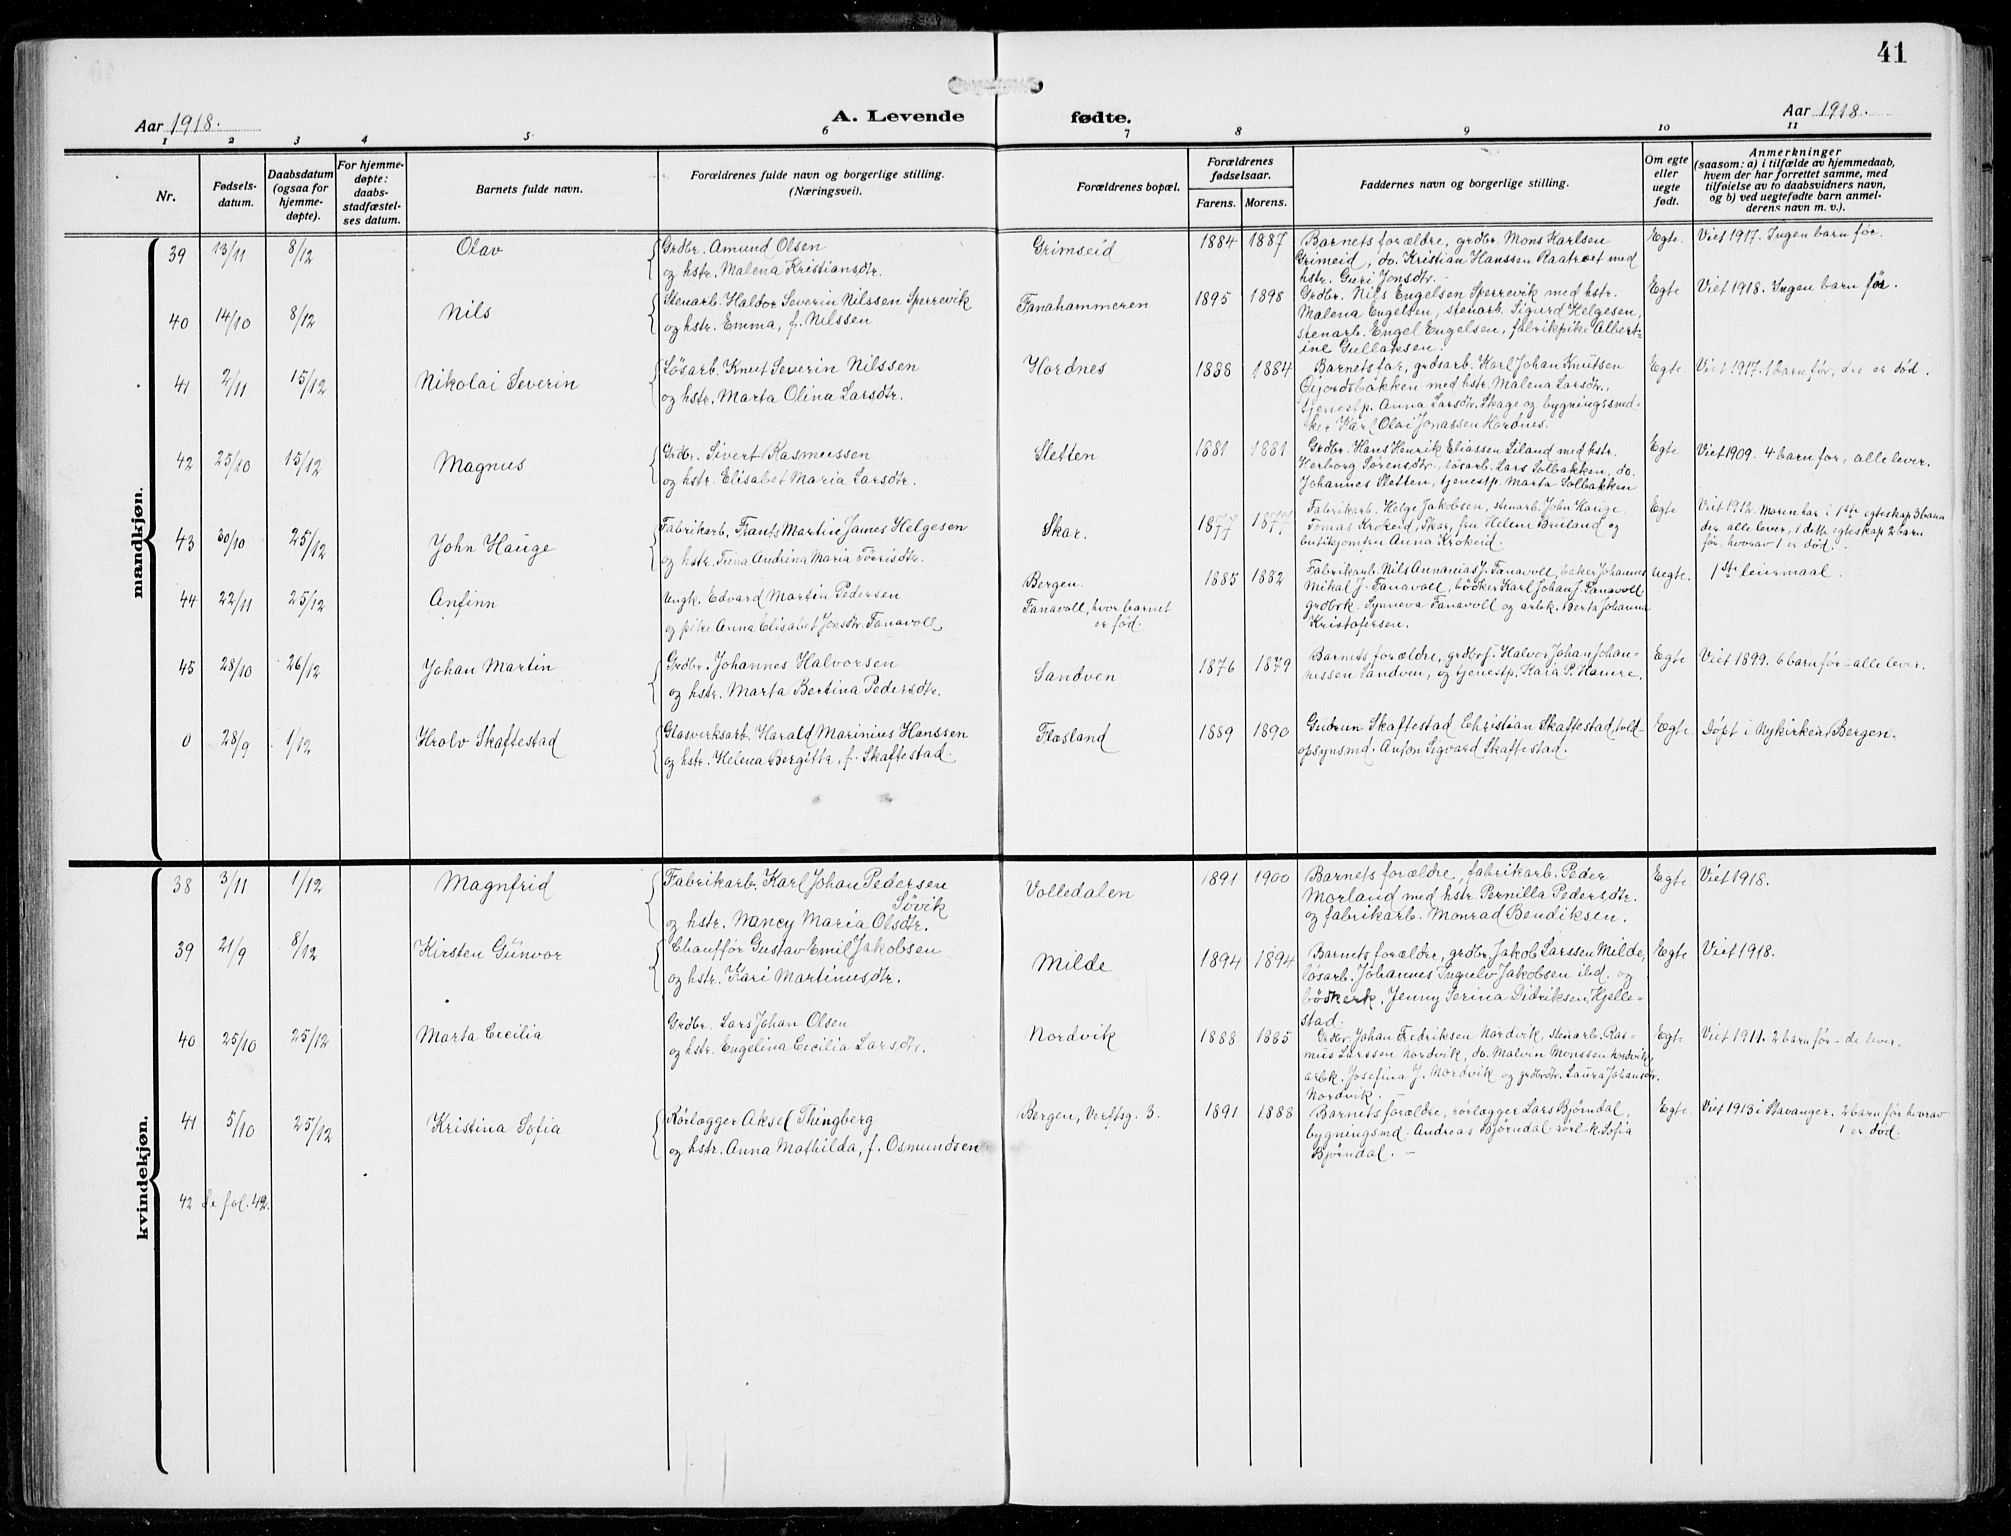 41
Aar 1918.
A. Levende fødte.
Aar 1918.
1 2 3 4 5 6 7 8 9 10 11
Nr.
Fødsels-
datum.
Daabsdatum
(ogsaa for
hjemme-
døpte).
For hjemme-
døpte:
daabs-
stadfæstel-
ses datum.
Barnets fulde navn.
Forældrenes fulde navn og borgerlige stilling.
(Næringsvei).
Forældrenes bopæl.
Forældrenes
fødselsaar.
Farens. Morens.
Faddernes navn og borgerlige stilling.
Om egte
eller
uegte
født.
Anmerkninger
(saasom: a) i tilfælde av hjemmedaab,
hvem der har forrettet samme, med
tilføielse av to daabsvidners navn,
og b) ved uegtefødte barn anmel-
derens navn m. v.).
mandkjøn.
39 13/11 8/12 Olav
Grdbr. Amund Olsen
og hstr. Malena Kristiansdtr.
Grimseid 1884 1887
Barnets forældre, grdbr. Mons Karlsen
Grimeid, do. Kristian Hanssen Raatræet med
hstr. Guri Jonsdtr. -
Egte. Viet 1917. Ingen barn før.
40 14/10 8/12 Nils
Stenarb. Haldor Severin Nilssen Sperrevik
og hstr. Emma, f. Nilssen
Fanahammeren 1895 1898
Grdbr. Nils Engelsen Sperrevik med hstr.
Malena Engelsen, stenarb. Sigurd Helgesen,
stenarb. Engel Engelsen, fabrikpike Albert-
ine Gullaksen.
Egte Viet 1918. Ingen barn før.
41 2/11 15/12 Nikolai Severin
Løsarb. Knut Severin Nilssen
og hstr. Marta Olina Larsdtr.
Hordnes 1888 1884
Barnets far, grdsarb. Karl Johan Knutsen
Gjordsbakken med hstr. Malena Larsdtr.,
tjenestp. Anna Larsdtr. Skage og bygningssned-
ker Karl Olai Jonassen Hordnes.
Egte Viet 1917. 1 barn før, det er død.
42 25/10 15/12 Magnus
Grdbr. Sivert Rasmussen
og hstr. Elisabet Maria Larsdtr.
Sletten 1881 1881
Grdbr. Hans Henrik Eliassen Liland med hstr.
Herborg Sørensdtr., løsarb. Lars Solbakken, do.
Johannes Sletten, tjenestp. Marta Solbakken
Egte Viet 1909. 4 barn før, alle lever.
43 30/10 25/12 John Hauge
Fabrikarb. Frants Martin James Helgesen
og hstr. Trina Andrina Maria Torrisdtr.
Skar. 1877 1877
Fabrikarb. Helge Jakobsen, stenarb. John Hauge,
Tomas Krokeid, Skar, fru Helene Bruland og
butikjomfru Anna Krokeid.
Egte Viet 1912. Moren har i 1ste egteskap 3 barn
der alle lever, i dette egteskap 2 barn
før, hvorav 1 er død. -
44 22/11 25/12 Anfinn
Ungk. Edvard Martin Pedersen
og pike Anna Elisabet Jonsdtr. Fanavoll
Bergen.
Fanavoll, hvor barnet
er fød.
1885 1882
Fabrikarb. Nils Annanias J. Fanavoll, baker Johannes
Mikal J. Fanavoll, bødker Karl Johan J. Fanavoll
grdbrk. Synneva Fanavoll og arbk. Berta Johanna
Kristofersen.
Uegte. 1ste leiermaal.
45 28/10 26/12 Johan Martin
Grdbr. Johannes Halvorsen
og hstr. Marta Bertina Pedersdtr.
Sandven 1876 1879
Barnets forældre, grdbrf. Halvor Johan Johan-
nessen Sandven, og tjenestp. Kaia P. Hamre.
Egte Viet 1899. 6 barn før - alle lever.
0 28/9 1/12 Hrolv Skaftestad
Glasverksarb. Harald Marinius Hanssen
og hstr. Helena Bergitte, f. Skaftestad.
Flesland 1889 1890
Gudrun Skaftestad, Christian Skaftestad, told-
opsynsmd. Anton Sigvard Skaftestad.
Egte. Døpt i Nykirken, Bergen.
kvindekjøn.
38 3/11 1/12 Magnfrid
Fabrikarb. Karl Johan Pedersen
Søvik
og hstr. Nancy Maria Olsdtr.
Volledalen 1891 1900
Barnets forældre, fabrikarb. Peder
Morland med hstr. Pernilla Pedersdtr.
og fabrikarb. Monrad Bendiksen.
Egte Viet 1918.
39 21/9 8/12 Kirsten Gunvor
Chauffør Gustav Emil Jakobsen
og hstr. Kari Martinusdtr.
Milde 1894 1894
Barnets forældre, grdbr. Jakob Larssen Milde,
løsarb. Johannes Ingulv Jakobsen ibd. og
bødkerk. Jenny Serina Didriksen, Hjelle-
stad.
Egte Viet 1918.
40 25/10 25/12 Marta Cecilia
Grdbr. Lars Johan Olsen
og hstr. Engelina Cecilia Larsdtr.
Nordvik 1888 1885
Grdbr. Johan Fredriksen Nordvik, stenarb. Ras-
mus Larssen Nordvik, do. Malvin Monssen Nordvik,
arbk. Josefina J. Nordvik og grdbrdtr. Laura Johansdtr.
Nordvik. -
Egte Viet 1911. 2 barn før - de lever.
41 5/10 25/12 Kristina Sofia
Rørlægger Aksel Thingberg
og hstr. Anna Mathilda, f. Osmundsen
Bergen, Verftsg. 3. 1891 1888
Barnets forældre, rørlægger Lars Bjørndal,
bygningsmd. Andreas Bjørndal rørl-k. Sofia
Bjørndal. -
Egte. Viet 1913 i Stavanger. 2 barn før hvorav
1 er død.
42 Se fol. 42.